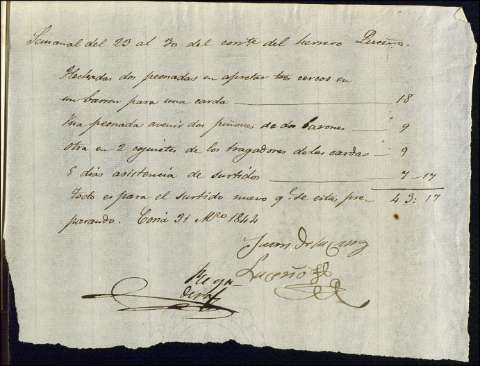 Semanal del 23 al 30 del corr.te del herrero Luceño.
Hechas dos peonadas en apretar tres cercos en
un barron para una carda — 18
Una peonada avenir dos piñones de dos barones — 9
otra en 2 coginetes de los tragadores de las cardas — 9
5 dias asistencia de surtidos — 7 - 17
Todo es para el surtido nuevo q.e se esta pre- 43: 17
parando. Coria 31 M.zo 1844
Juan de la Cruz
Luceño